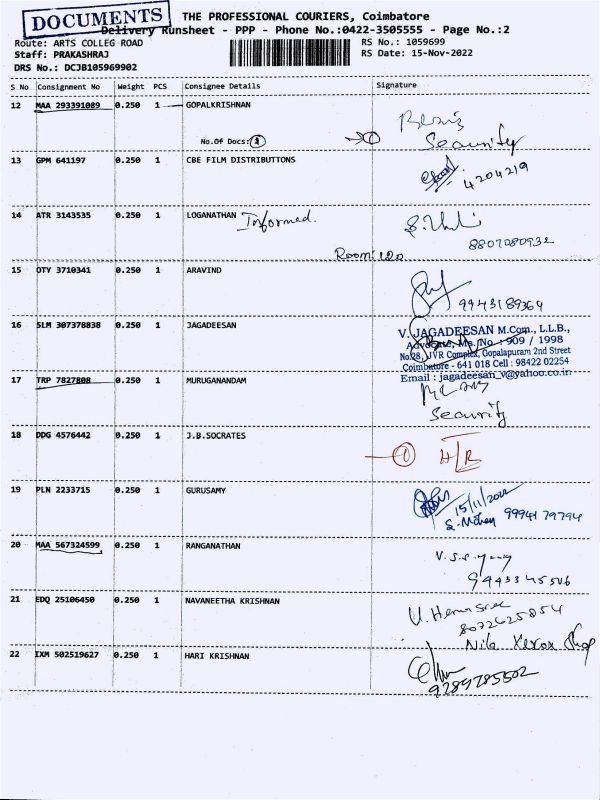 DOCUMENTS
THE PROFESSIONAL COURIERS, Coimbatore
Delivery Runsheet - PPP - Phone No.:0422-3505555 - Page No.:2
Route: ARTS COLLEG ROAD
RS No.: 1059699
Staff: PRAKASHRAJ
RS Date: 15-Nov-2022
DRS No.: DCJB105969902
S No Consignment No Weight PCS Consignee Details Signature
12 MAA 293391089 0.250 1 GOPALKRISHNAN
No.Of Docs:
Security
13 GPM 641197 0.250 1 CBE FILM DISTRIBUTTONS
4204219
14 ATR 3143535 0.250 1 LOGANATHAN Informed.
8807080932
Room: 120
15 OTY 3710341 0.250 1 ARAVIND
9943189364
16 SLM 307378838 0.250 1 JAGADEESAN
V. JAGADEESAN M.Com., L.L.B.,
Advocate, Ms. No : 909 / 1998
No.28, JVR Complex, Gopalapuram 2nd Street
Coimbatore - 641 018 Cell : 98422 02254
Email : jagadeesan_v@yahoo.co.in
17 TRP 7827808 0.250 1 MURUGANANDAM
Security
18 DDG 4576442 0.250 1 J.B.SOCRATES
1 H/R
19 PLN 2233715 0.250 1 GURUSAMY
15/11/2022
99941 79794
20 MAA 567324599 0.250 1 RANGANATHAN
9443345506
21 EDQ 25106450 0.250 1 NAVANEETHA KRISHNAN
8072625854
Nila Xerox Shop
22 IXM 502519627 0.250 1 HARI KRISHNAN
9289785502